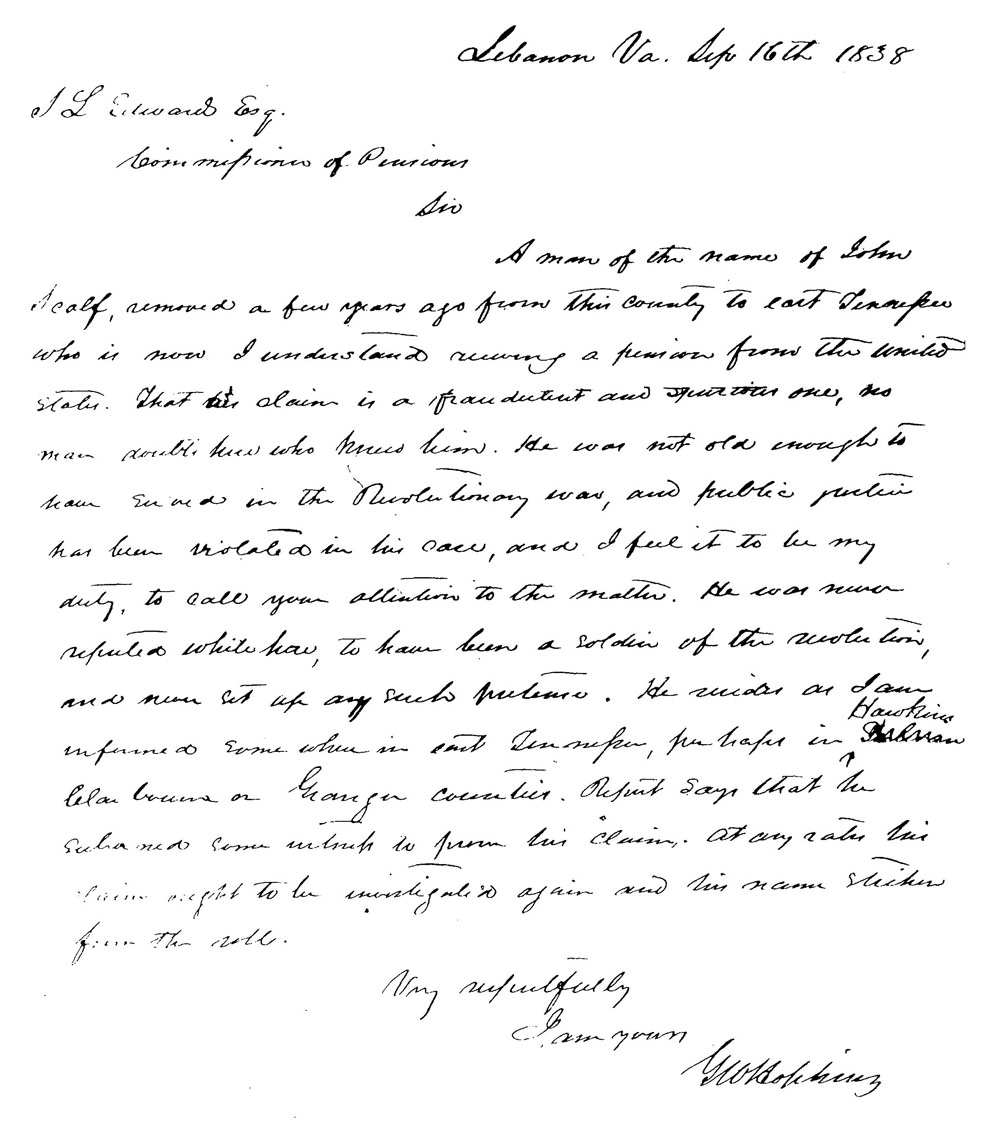 Lebanon Va. Sep 16th 1838
J L Edward Esq.
Commissioner of Pensions
Sir
A man of the name of John
Scalf, removed a few years ago from this county to east Tennessee
who is now I understand receiving a pension from the united
states. That his claim is a fraudulent and spurious one, no
man doubts here who knew him. He was not old enough to
have served in the Revolutionary war, and public justice
has been violated in his case, and I feel it to be my
duty, to call your attention to the matter. He was never
reputed while here, to have been a soldier of the revolution,
and never set up any such pretense. He resides as I am
informed some where in east Tennessee, perhaps in Hawkins
Claibourne or Grainger counties. Report says that he
suborned some witness to prove his claim. At any rate his
claim ought to be investigated again and his name stricken
from the roll.
Very respectfully
I am yours
GW Hopkins